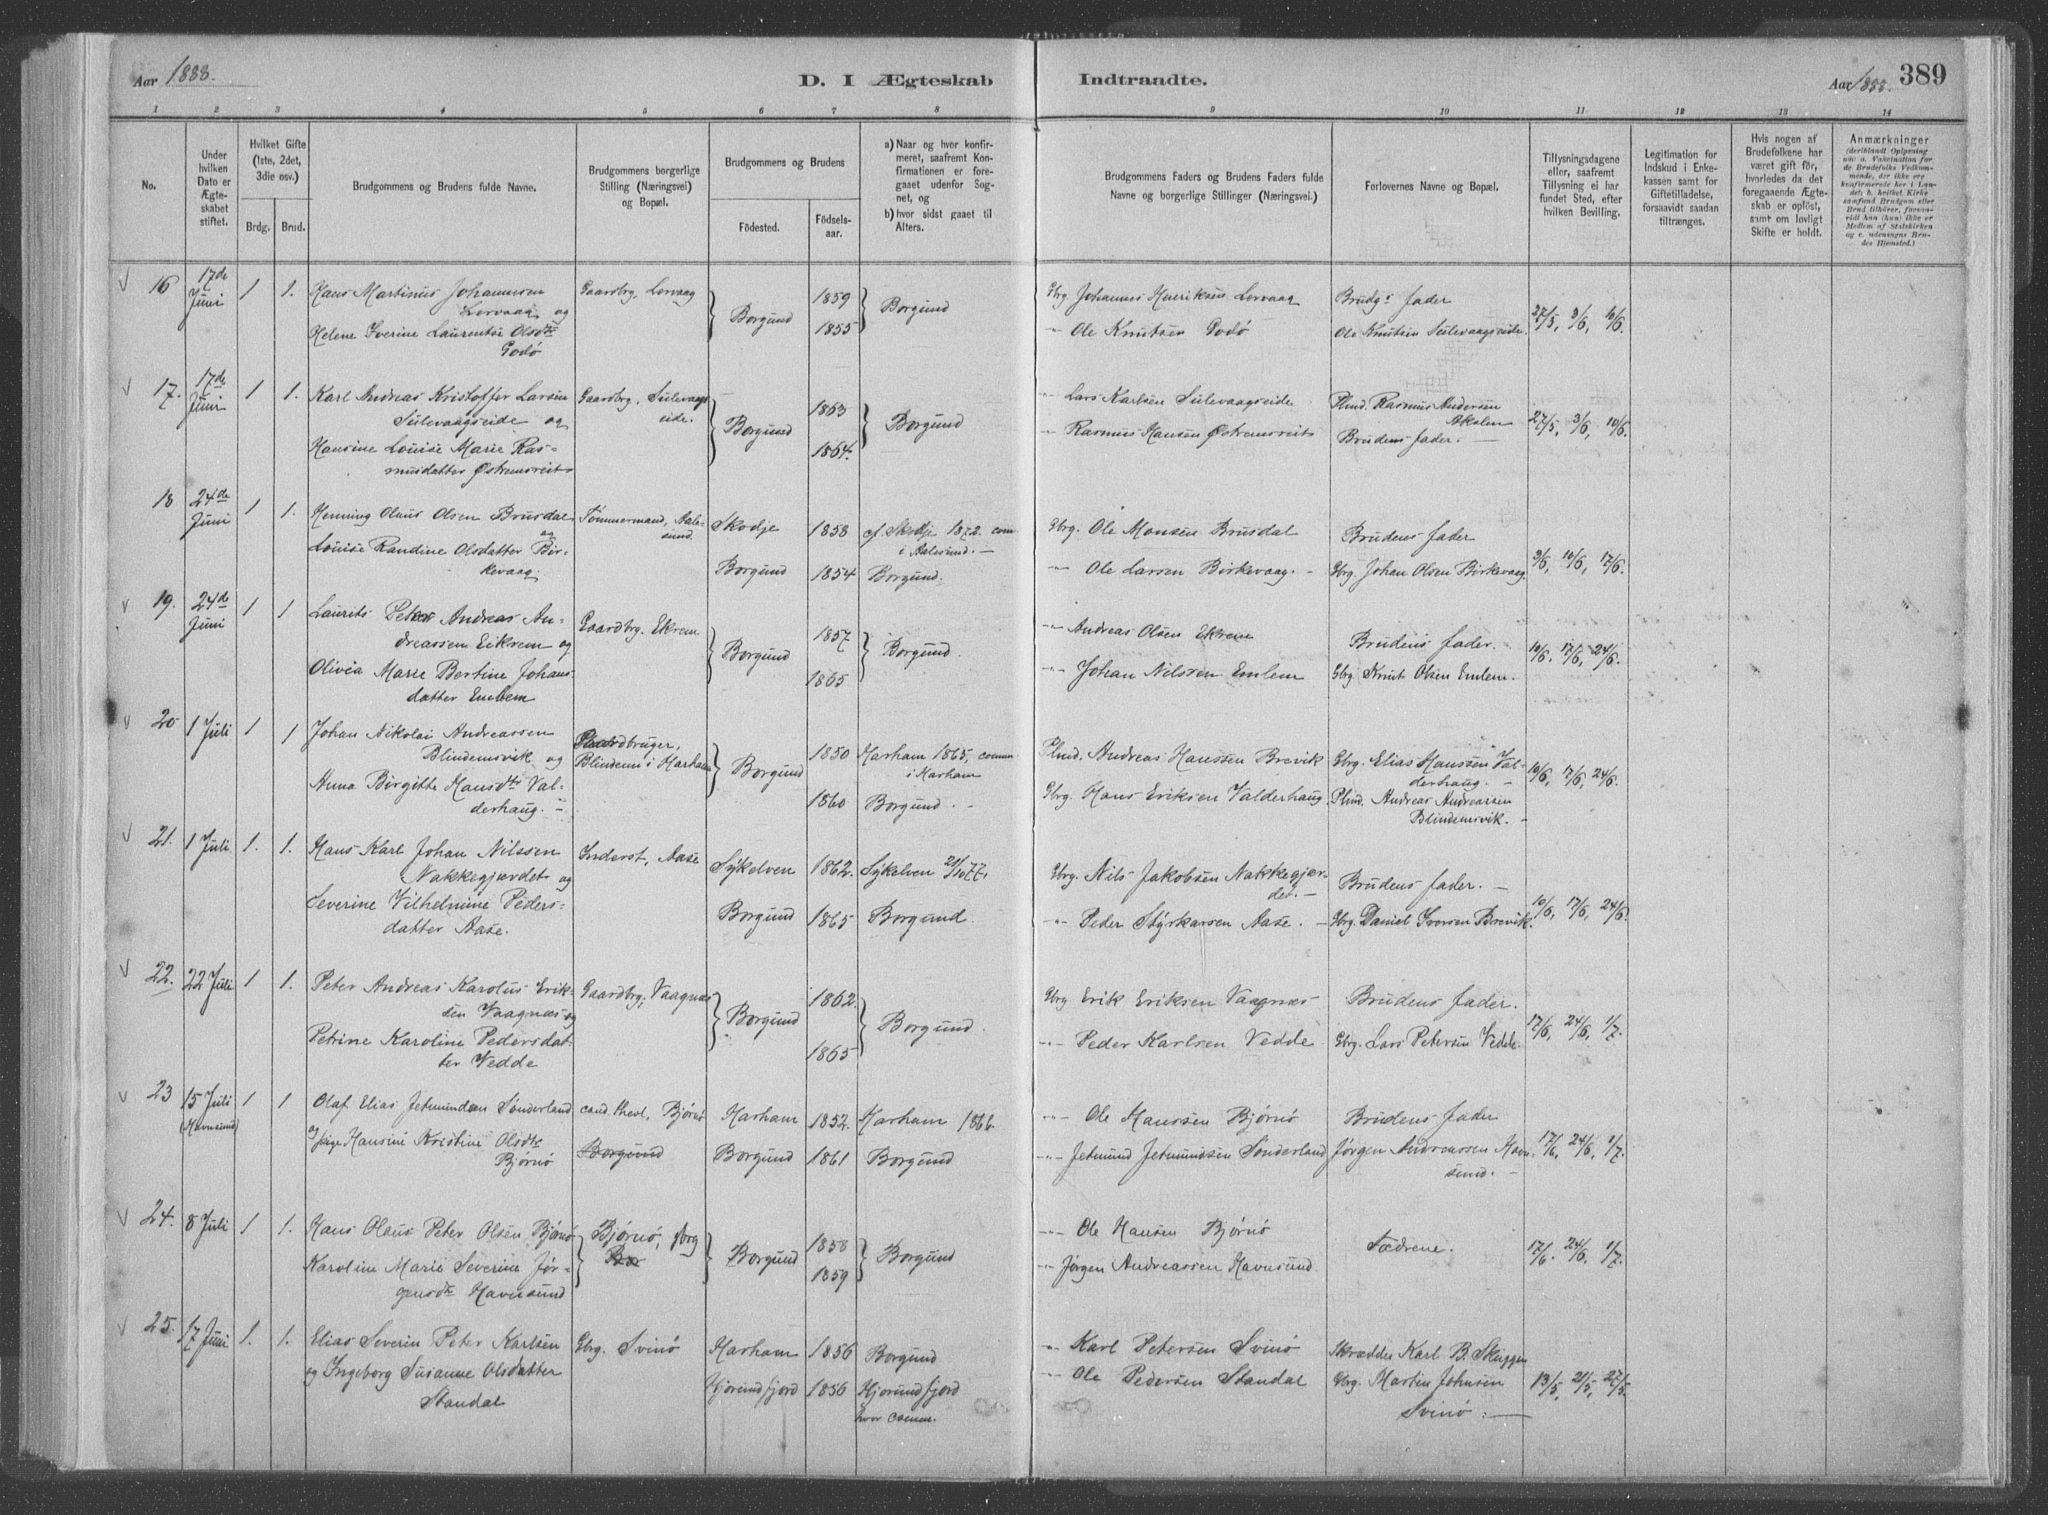 Aar 1888.
D. I Ægteskab Indtraadte.
Aar 1888. 389
1 2 3 4 5 6 7 8 9 10 11 12 13 14
No.
Under hvilken Dato er Ægteskabet stiftet.
Hvilket Gifte (1ste, 2det, 3die osv.)
Brdg. Brud.
Brudgommens og Brudens fulde Navne.
Brudgommens borgerlige Stilling (Næringsvei) og Bopæl.
Brudgommens og Brudens
Födested. Födsels-aar.
a) Naar og hvor konfirmeret, saafremt Konfirmationen er foregaaet udenfor Sognet, og
b) hvor sidst gaaet til Alters.
Brudgommens Faders og Brudens Faders fulde Navne og borgerlige Stillinger (Næringsvei.)
Forlovernes Navne og Bopæl.
Tillysningsdagene eller, saafremt Tillysning ei har fundet Sted, efter hvilken Bevilling.
Legitimation for Indskud i Enkekassen samt for Giftetilladelse, forsaavidt saadan tiltrænges.
Hvis nogen af Brudefolkene har været gift før, hvorledes da det foregaaende Ægteskab er oplöst, samt om lovligt Skifte er holdt.
Anmærkninger
16 17de Juni 1 1. Hans Martinus Johannesen Lervaag og Gaardbrg. Lervaag Borgund 1859 Borgund Gbrg Johannes Henriksen Lervaag Brudgs fader 27/5, 3/6, 10/6.
Helene Iverine Laurentse Olsdtr Godø 1855 -"- Ole Knutsen Godø Ole Knutsen Sulevaagseide
17. 17de Juni 1 1. Karl Andreas Kristoffer Larsen Sulevaagseide og Gaardbrg, Sulevaagseide. Borgund 1863 Borgund -"- Lars Karlsen Sulevaagseide Plmd. Rasmus Andersen 27/5, 3/6, 10/6.
Hansine Louise Marie Rasmusdatter Østremsreit 1864. -"- Rasmus Hansen Østremsreit Brudens fader. -
18 24de Juni 1 1. Henning Olaus Olsen Brusdal og Tømmermand, Aalesund. Skodje 1858 cf. Skodje 1872 com i Aalesund. - Gbrg. Ole Monsen Brusdal Brudens fader 3/6, 10/6, 17/6.
Louise Randine Olsdatter Birkevaag. Borgund 1854 Borgund. -"- Ole Larsen Birkevaag. - Gbrg. Johan Olsen Birkevaag
19. 24de Juni 1 1 Laurits Peter Andreas Andreassen Eikrem og Gaardbrg. Ekrem Borgund 1857 Borgund. -"- Andreas Olsen Ekrem Brudens fader. 10/6, 17/6, 24/6.
Olivia Marie Bertine Johansdatter Emlem 1865 -"- Johan Nilssen Emlem Gbrg. Knut Olsen Emlem.
20 1 Juli 1 1 Johan Nikolai Andreassen Blindemsvik og Blindem i Harham Borgund 1850 Harham 1865, comm i Harham Plmd. Andreas Hanssen Brevik Gbrg. Elias Hanssen Valderhaug. - 10/6, 17/6, 24/6.
Anna Birgitte Hansdtr Valderhaug. - 1860 Borgund. - Gbrg. Hans Eriksen Valderhaug. Plmd. Andreas Andreassen Blindemsvik. -
21. 1 Juli. 1. 1. Hans Karl Johan Nilssen Nakkegjærdet og Inderst, Aase Sykelven 1862. Sykelven 21/10 77. Gbrg. Nils Jakobsen Nakkegjærdet. - Brudens fader. - 10/6, 17/6, 24/6.
Severine Vilhelmine Pedersdatter Aase. Borgund 1865 Borgund -"- Peder Styrkarsen Aase. - Gbrg. Daniel Iversen Brevik.
22. 22 Juli 1 1. Peter Andreas Karolus Eriksen Vaagnæs og Gaardbrg, Vaagnæs Borgund 1862. Borgund. Gbrg Erik Eriksen Vaagnæs Brudens fader. 17/6, 24/6, 1/7.
Petrine Karoline Pedersdatter Vedde 1865 -"- Peder Karlsen Vedde Gbrg. Lars Petersen Vedde.
23 15 Juli (Havnsund) 1 1 Olaf Elias Jetmundsen Sønderland cand. theol, Bjørnø Harham 1852. Harham 1866. -"- Ole Hanssen Bjørnø Brudens fader 17/6, 24/6, 1/7.
og Hansine Kristine Olsdtr Bjørnø Borgund Borgund 1861 Borgund -"- Jetmund Jetmundsen Sønderland Jørgen Andreassen Havnsund. -
24. 8 Juli 1 1. Hans Olaus Peter Olsen Bjørnø Bjørnø, gbrg Borgund 1858 Borgund -"- Ole Hansen Bjørnø Fædrene. 17/6. 24/6, 1/7.
Karoline Marie Severine Jørgensdtr Havnsund 1859 -"- Jørgen Andreassen Havnsund
25. 17 Juni 1. 1. Elias Severin Peter Karlsen Gbrg. Svinø Harham 1856 Borgund -"- Karl Petersen Svinø Skrædder Karl B. Skuggen 13/5, 21/5, 27/5.
og Ingeborg Susanne Olsdatter Standal Hjørundfjord 1856 Hjørundfjord hvor comm. -"- Ole Pedersen Standal Gbrg. Martin Johnsen Svinø. -